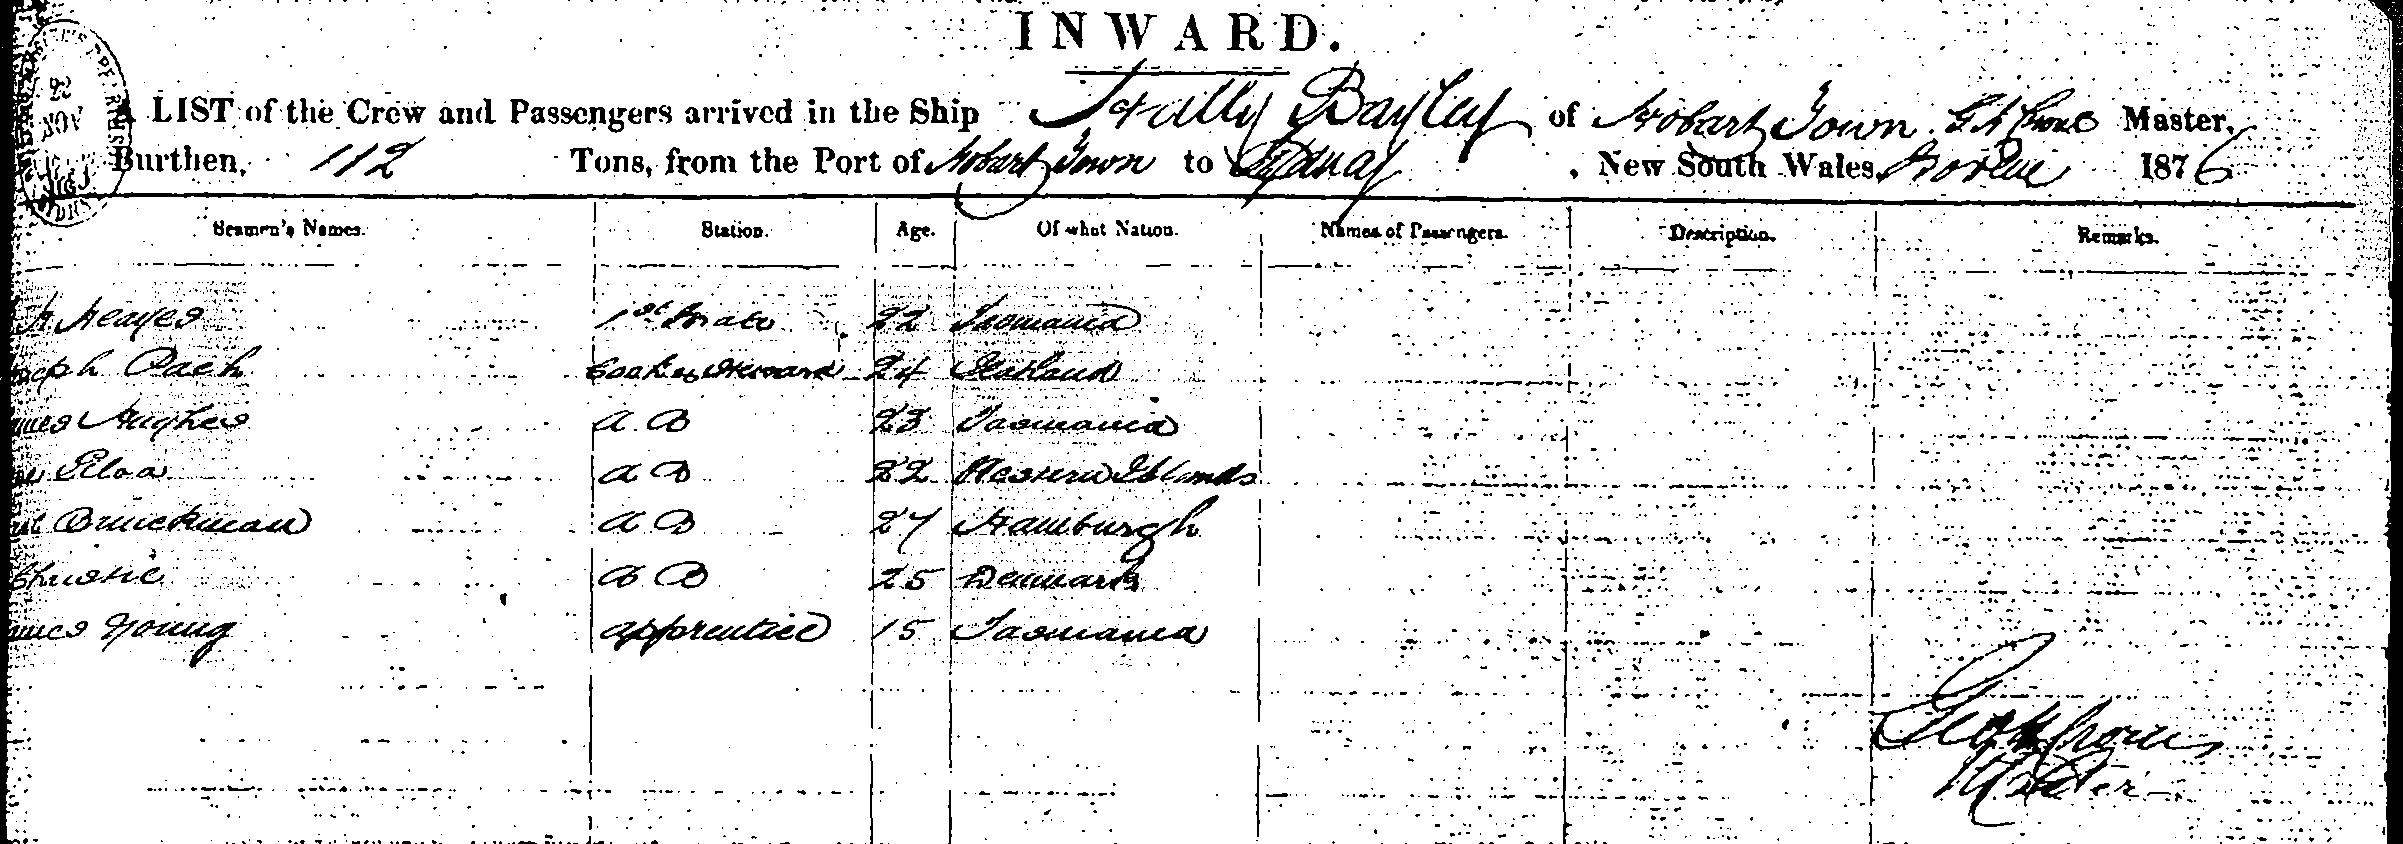 INWARD.
A LIST of the Crew and Passengers arrived in the Ship Hally Bayley of Hobart Town Master,
Burthen, 112 Tons, from the Port of Hobart Town to Sydney, New South Wales, 1876
Seamen's Names. Station. Age. Of what Nation. Names of Passengers. Description. Remarks.
Heayes 1st Mate 22 Tasmania
Pach Cook & Steward 24 Scotland
Hughes A B 23 Tasmania
A B 22 Western Islands
Bruckman A B 27 Hamburgh
Christie A B 25 Denmark
Young apprentice 15 Tasmania
Master